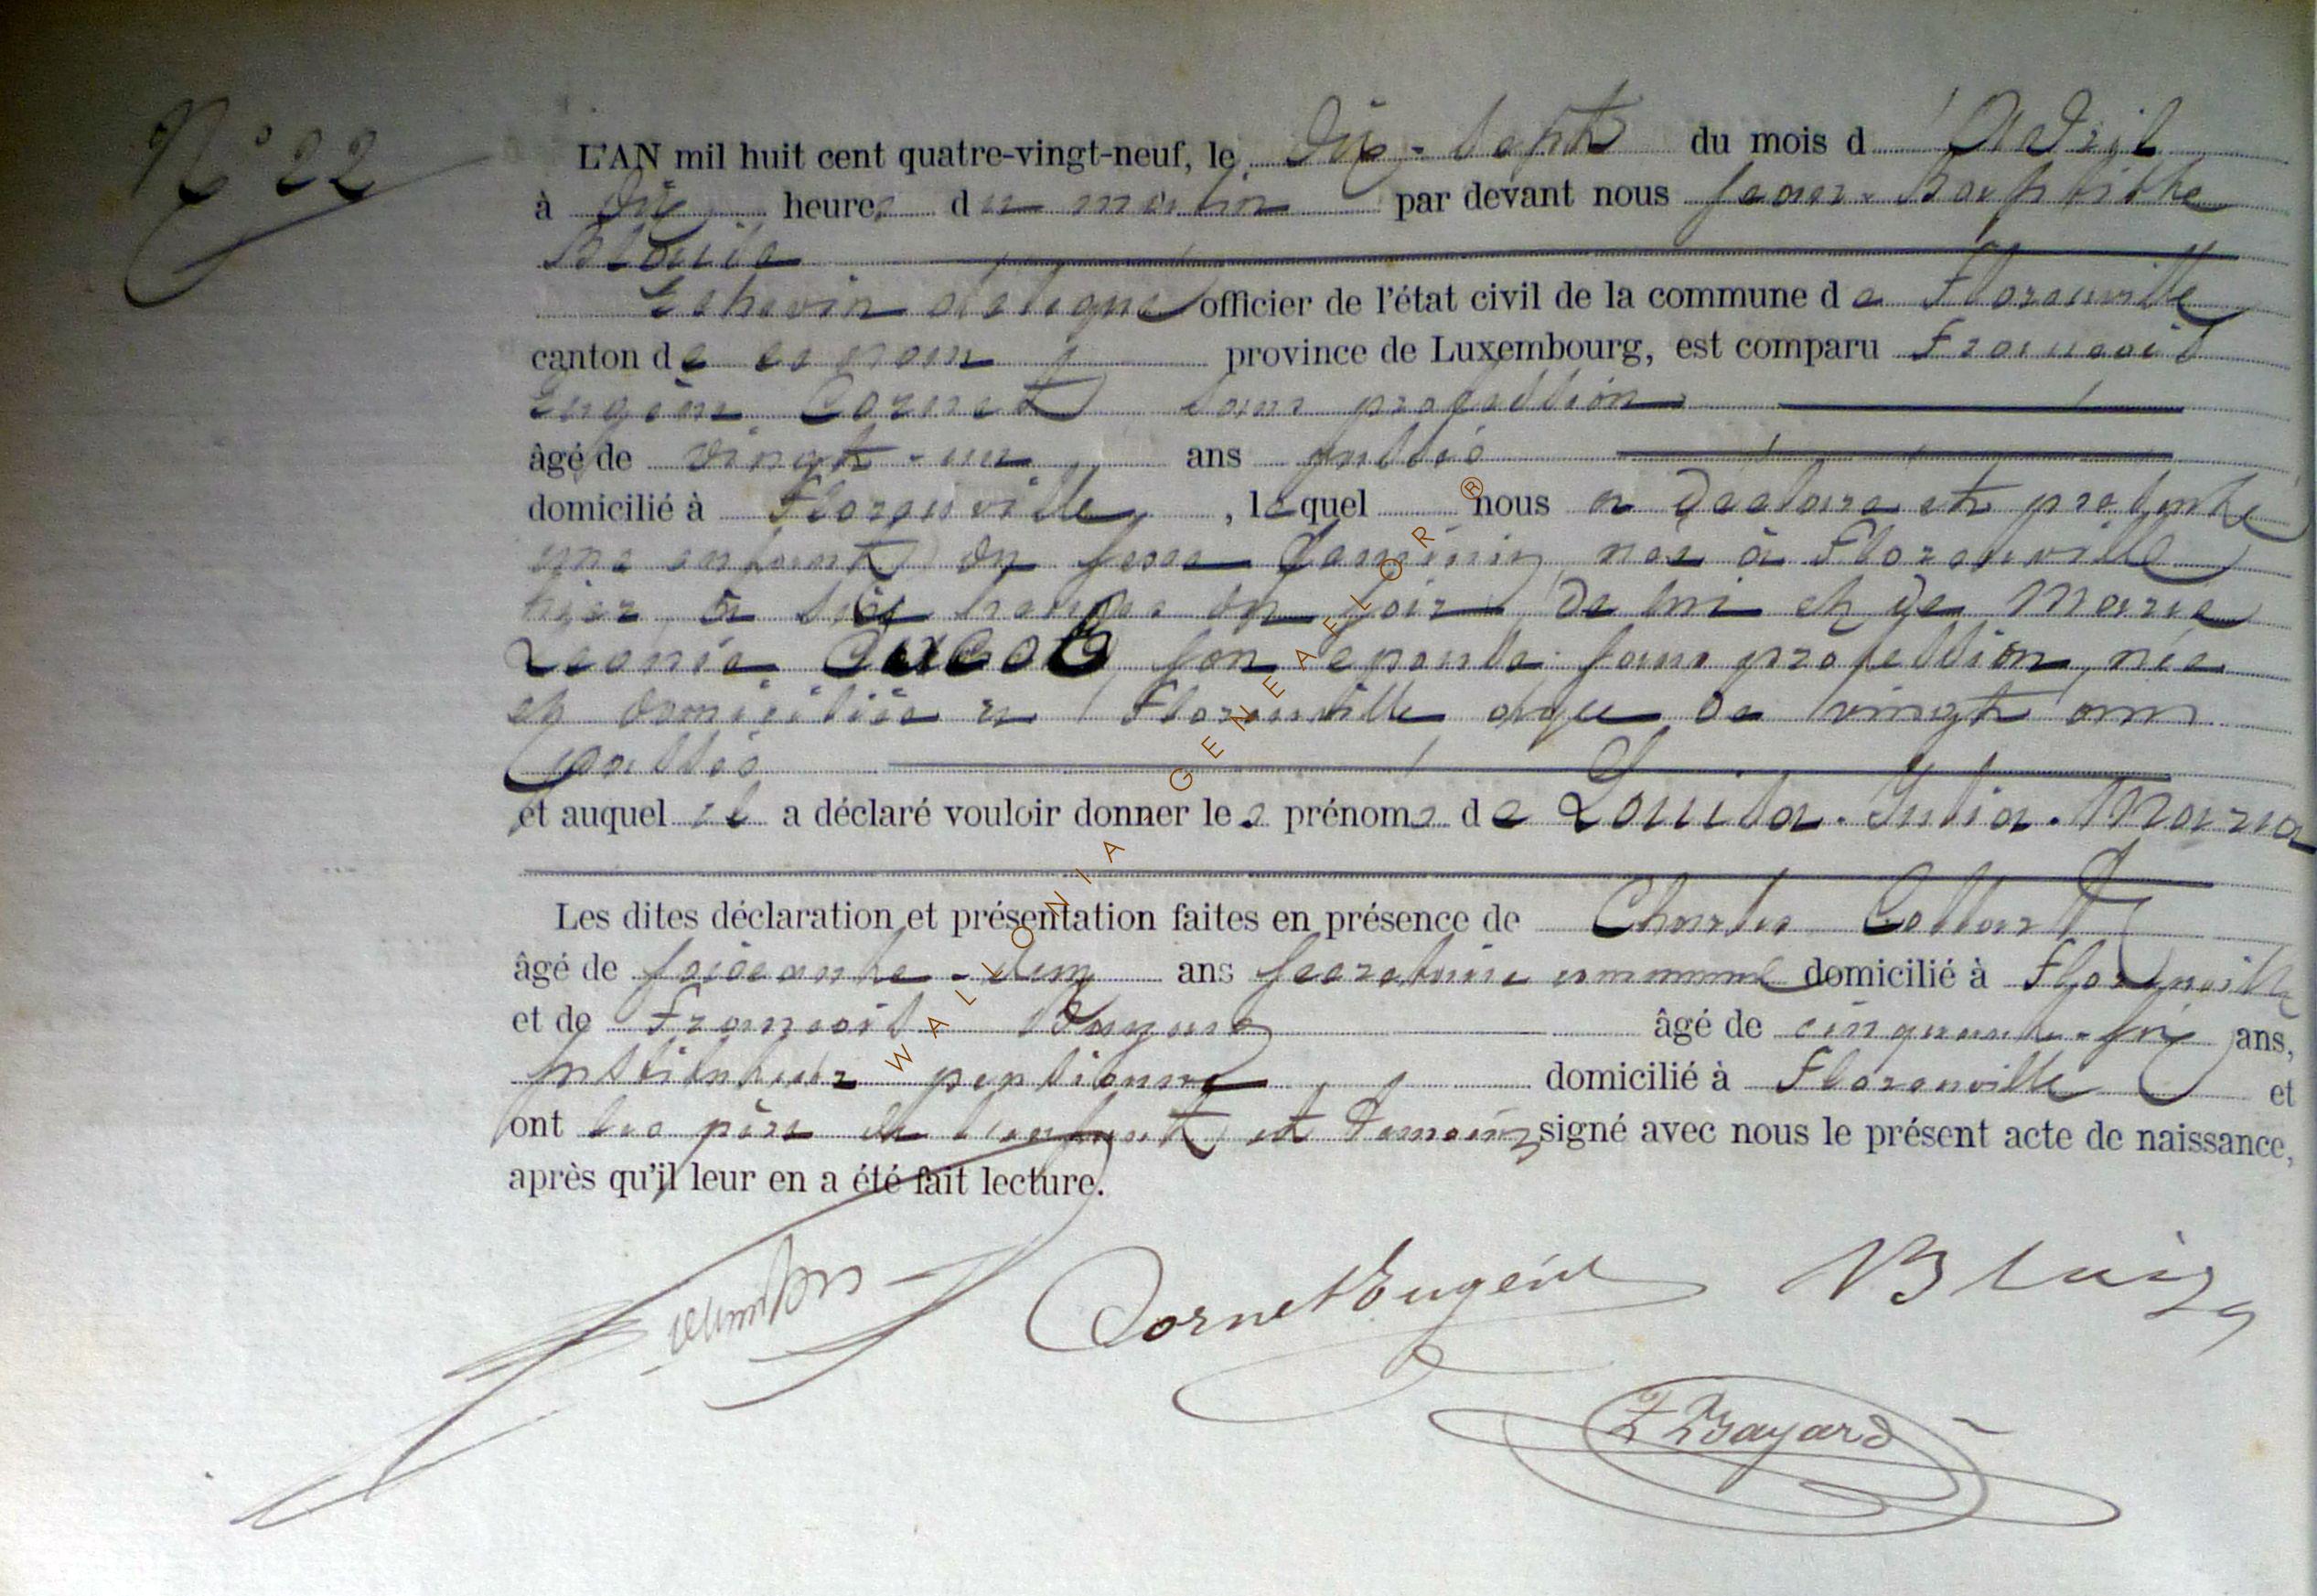 N° 22
L'AN mil huit cent quatre-vingt-neuf, le Dix-sept du mois d'Avril
à Dix heures du matin par devant nous Jean-Baptiste
Blaise
Echevin délégué officier de l'état civil de la commune de Florenville
canton de ce nom province de Luxembourg, est comparu François
Eugène Cornet sans profession
âgé de vingt-un ans passés
domicilié à Florenville, lequel nous a déclaré et présenté
une enfant du sexe féminin, née à Florenville
hier à six heures du soir, de lui et de Marie
Léonie son épouse sans profession, née
et domiciliée à Florenville âgée de vingt ans
passés
et auquel il a déclaré vouloir donner les prénoms de Louisa. Julia. Maria
Les dites déclaration et présentation faites en présence de Charles Collart
âgé de soixante-cinq ans secrétaire communal domicilié à Florenville
et de François Bayard âgé de cinquante-six ans,
Instituteur pensionné domicilié à Florenville et
ont les père de l'enfant et témoins signé avec nous le présent acte de naissance,
après qu'il leur en a été fait lecture.
Cornet Eugène
Blaise
F Bayard
WALLONIA GENEAELOR ®